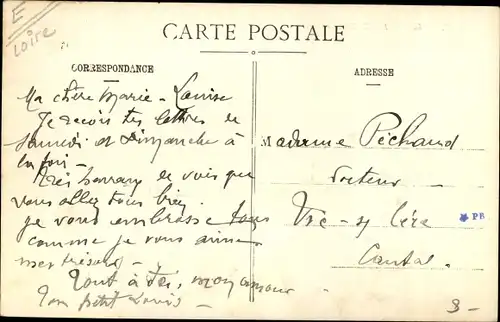 E
Loire
CARTE POSTALE
CORRESPONDANCE
ADRESSE
Ma chère Marie-Louise
Je reçois tes lettres de
samedi et Dimanche à
la fois -
Très heureux de vois que
vous allez tous bien
je vous embrasse tous
comme je vous aime
mes trésors -
Tout à toi, mon amour
Ton petit Louis -
Madame Péchaud
Docteur
Vic-s/ Cère
Cantal.
PB
8-